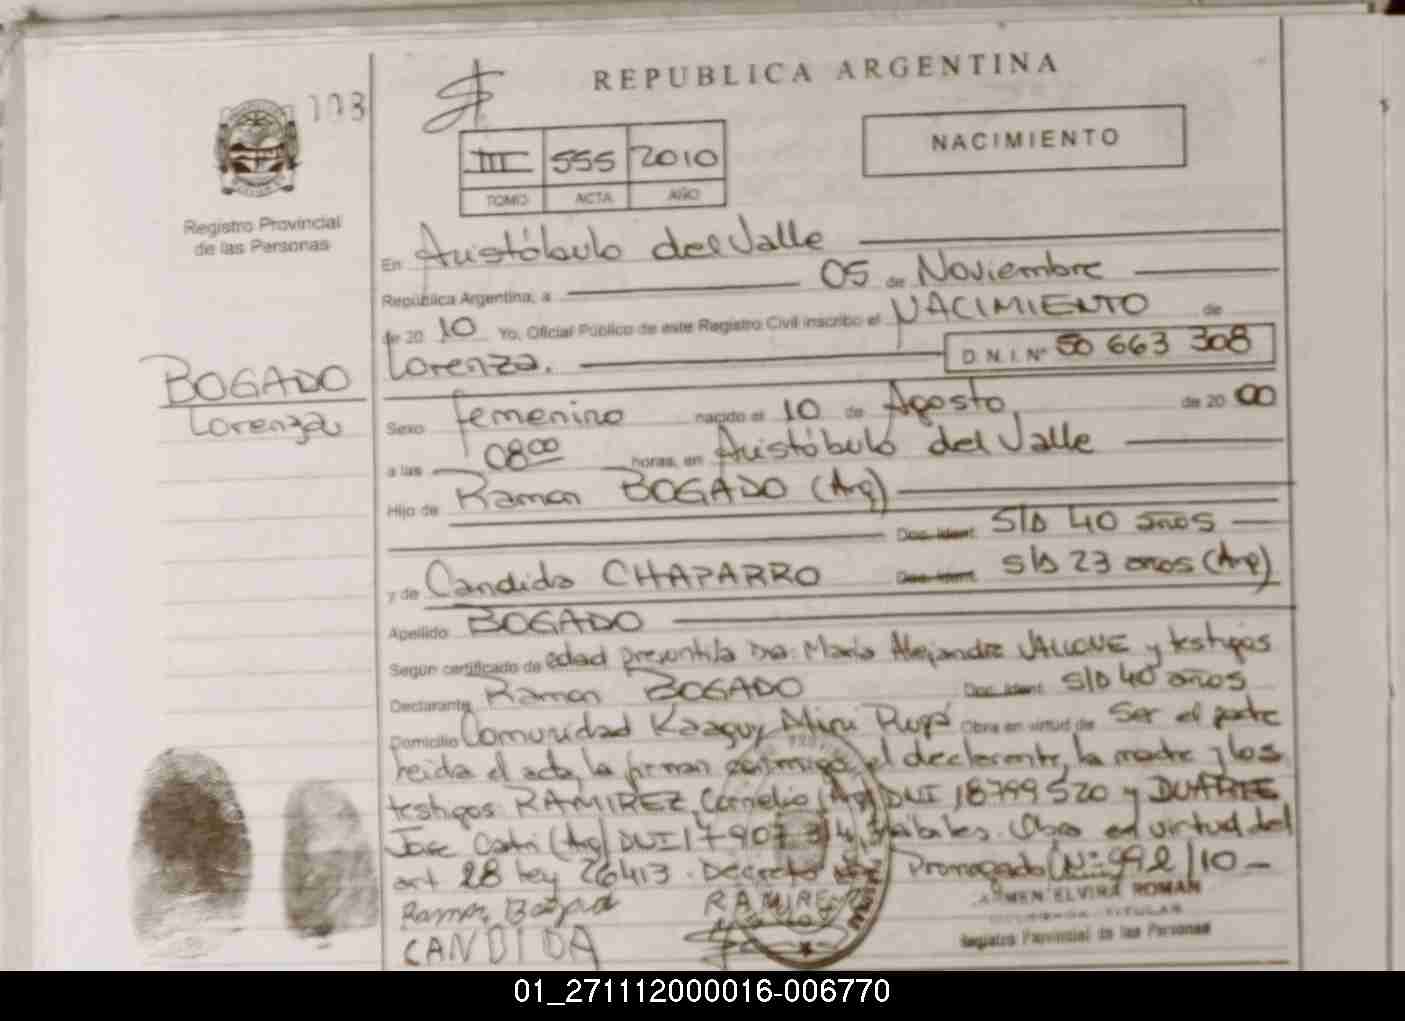 REPUBLICA ARGENTINA
103
III 555 2010
TOMO ACTA AÑO
NACIMIENTO
Registro Provincial
de las Personas
En Aristóbulo del Valle
República Argentina, a 05 de Noviembre
de 20 10 Yo, Oficial Público de este Registro Civil inscribo el NACIMIENTO de
Lorenza. D.N.I. Nº 50 663 308
BOGADO
Lorenza
Sexo femenino nacido el 10 de Agosto de 20 00
a las 08 00 horas, en Aristóbulo del Valle
Hijo de Ramon BOGADO (Arg)
Doc. Ident. S/D 40 años
y de Candida CHAPARRO Doc. Ident. S/D 23 años (Arg)
Apellido BOGADO
Según certificado de edad presuntiva Dra. María Alejandra y testigos
Declarante Ramon BOGADO Doc. Ident. S/D 40 años
Domicilio Comunidad Kaaguy Miri Rupá Obra en virtud de Ser el padre
leida el acta, la firman conmigo, el declarante, la madre y los
testigos RAMIREZ, Cornelio (Arg) DNI 18799520 y DUARTE
Jose (Arg) DNI hábiles. Obra en virtud del
art 28 ley 26413. Decreto Prorrogado (Nº 992/10
Ramon Bogado RAMIREZ
CANDIDA
CARMEN ELVIRA ROMAN
TITULAR
Registro Provincial de las Personas
01_271112000016-006770